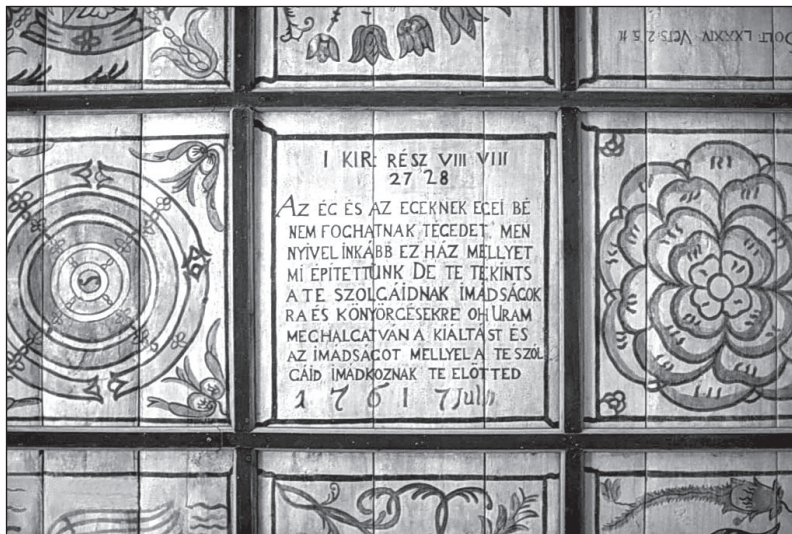 SOLT: LXXXIV. VERS: 2. 5. ft
I KIR: RÉSZ VIII VIII
27 28
AZ ÉG ÉS AZ EGEKNEK EGEI BÉ
NEM FOGHATNAK TÉGEDET, MEN
NYIVEL INKÁBB EZ HÁZ MELLYET
MI ÉPÍTETTÜNK DE TE TEKINTS
A TE SZOLGÁIDNAK IMÁDSÁGOK
RA ÉS KÖNYÖRGÉSEKRE OH URAM
MEGHALGATVÁN A KIÁLTÁST ÉS
AZ IMADSAGOT MELLYEL A TE SZÓL
GÁID IMÁDKOZNAK TE ELÖTTED
1761 7 Julii